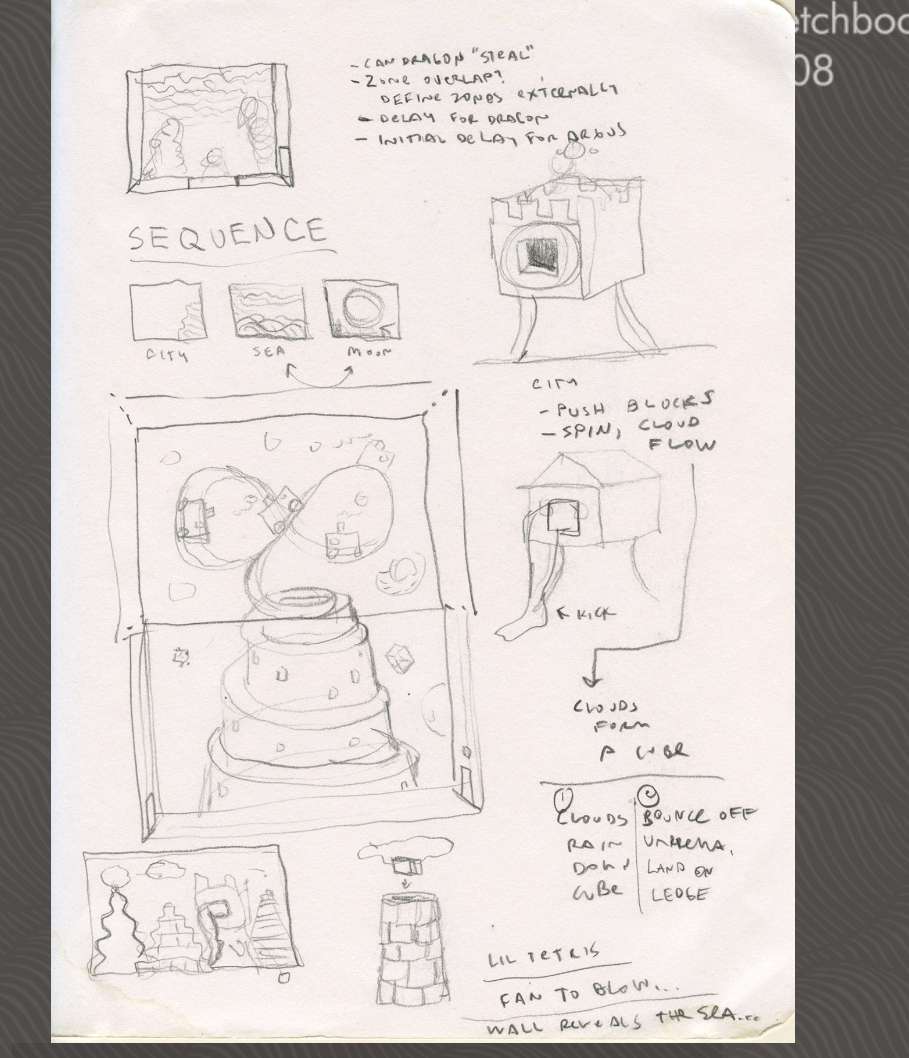 etchboo
08
- CAN DRAGON "STEAL"
- ZONE OVERLAP?
DEFINE ZONES EXTERNALLY
- DELAY FOR DRAGON
- INITIAL DELAY FOR ARGUS
SEQUENCE
CITY SEA MOON
CITY
- PUSH BLOCKS
- SPIN, CLOUD
FLOW
KICK
CLOUDS
FORM
A CUBE
1 2
CLOUDS BOUNCE OFF
RAIN
DOWN LAND ON
CUBE LEDGE
LIL TETRIS
FAN TO BLOW...
WALL REVEALS THE SEA...